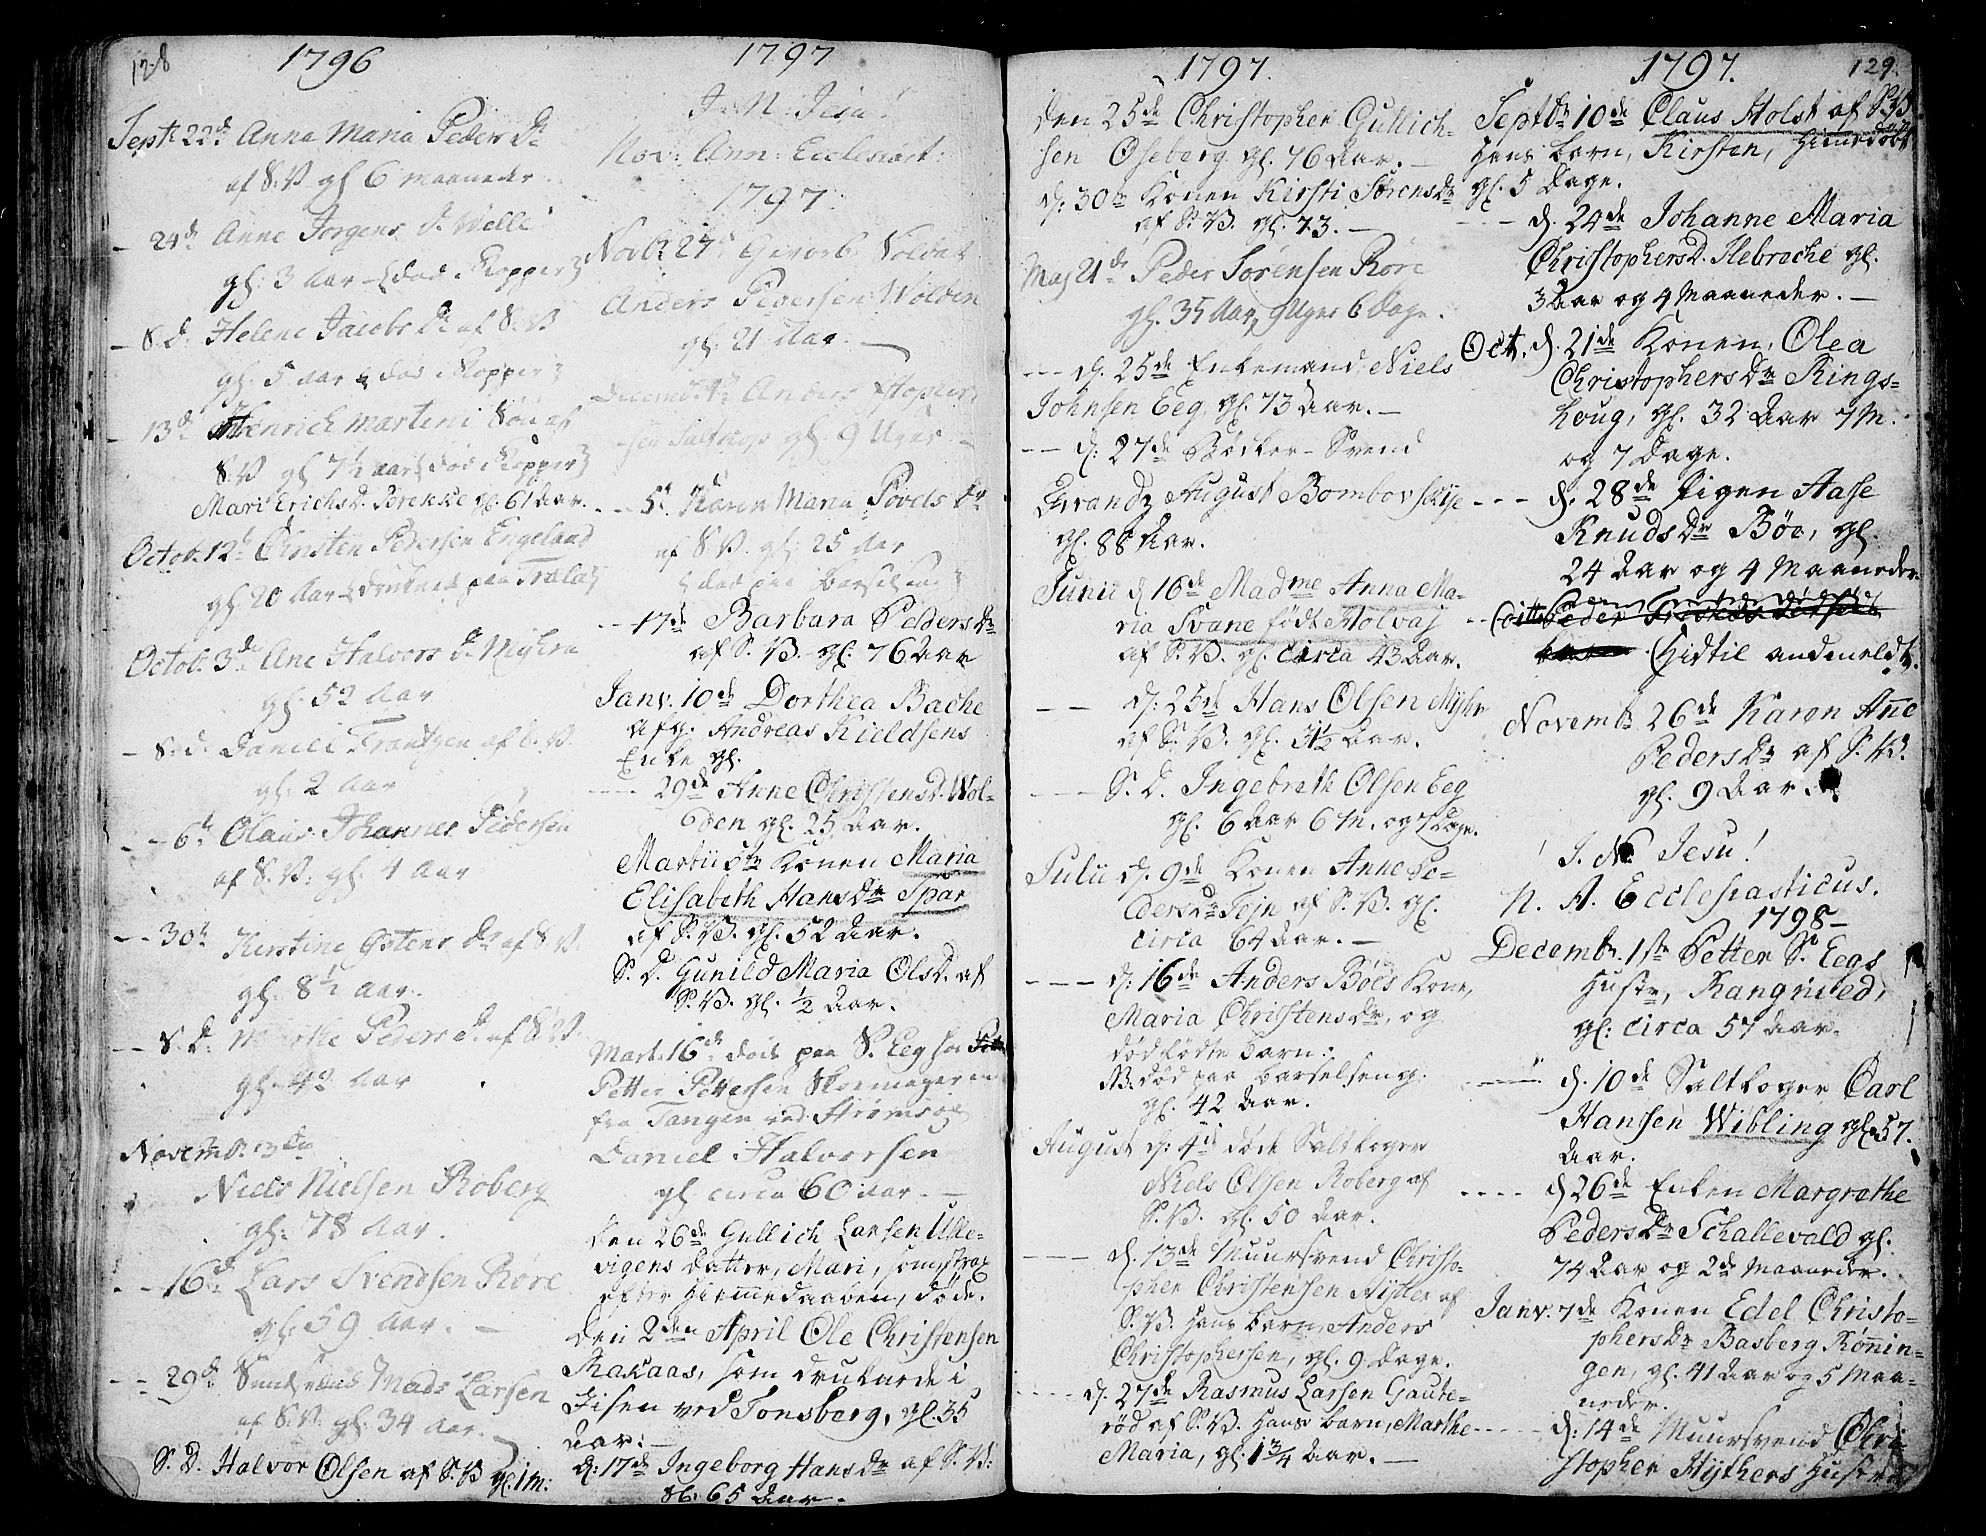 128
1796
Septr 22de Anna Maria Peders Dr
af S: V gl 6 maaneder
- 24de Anne Jorgens D. Welle
gl: 3 Aar {død Kopper}
- S. d. Helene Jacobs Dr af S. V
gl. 5 aar {død Kopper}
- 13de Henrich Martini Søn af
S. V gl 7½ aar {død Kopper}
Mari Erichs D. Sørekke gl. 61 Aar.
Octob. 12te Christen Pedersen Engeland
gl. 20 Aar {druknet paa
Octob. 3de Ane Halvors Dr Myhra
gl. 53 Aar
- S. d. Daniel Frantzen af S. V.
gl. 2 aar
- - 6te Olaus Johannes Pedersen
af S. V: gl. 4 Aar
- - 30te Kirstine Ostens Dr af S. V.
gl. 8½ Aar.
- - S. d: Marthe Peders Dr. af S. V.
gl. 40 Aar
Novemb. 13de
Niels Nielsen Roberg
gl: 78 Aar.
- - 16de Lars Svendsen Røre
gl. 59 Aar. -
- - 29de Mads Larsen
af S. V. gl. 34 Aar.
S. D. Halvor Olsen af S. V gl. 1 m:
1797
I. N. Jesu!
Nov: Ann: Ecclesiast:
1797
Novbr 27de Gevorb. Soldat
Anders Iversen Wolden
gl. 21 Aar.
Decemb. 4de Anders Xstopher-
sen gl. 9 Uger
- - 5te Karen Maria Povels Dr
af S. V. gl. 25 Aar
{død paa Barselseng}
- - 17de Barbara Peders Dr
af S. V. gl. 76 Aar
Janv. 10de Dorthea Bache
afg. Andreas Kieldsens
Enke gl.
- - - 29de Anne Christens D. Wol-
den gl. 25 Aar.
Martii 5te Konen Maria
Elisabeth Hans Dr Spar
af S. V. gl. 52 Aar.
S. D. Gunild Maria Ols D. af
S. V. gl. ½ Aar.
Mart. 16de døde paa S. Eeg hos
Petter Pettersen Skoemager en
fra Tangen ved Strømsøe
Daniel Halvorsen
gl. circa 60 aar. -
Den 26de Gullich Larsen Ulle-
vigens datter, Mari, som strax
efter Hiemmedaaben, døde.
Den 2den April Ole Christensen
Rakaas, som druknede i
Isen ved Tonsberg, gl. 35
Aar. -
d: 17de Ingeborg Hans Dr af S. V:
gl: 65 Aar. -
1797.
Den 25de Christopher Gullich-
sen Oseberg gl. 76 Aar. -
d: 30te Konen Kirsti Sørens Dr
af S. V. gl. 73. -
Maj 21de Peder Sørensen Røre
gl. 35 Aar, 9 Uger 6 Dage.
- - - d. 25de Enkemand Niels
Johnsen Eeg, gl. 73 Aar. -
- - d: 27de Bødker-Svend
Frandz August Bombovskye
gl. 88 Aar.
Junii d 16de Madme Anna Ma-
ria Svane født Holvaj
af S. V. gl. circa 43 Aar.
- - d: 25de Hans Olsen Myhr
af S. V. gl. 3½ Aar.
- - - S. D. Ingebreth Olsen Eeg
gl. 6 Aar 6 M. og 7 Dage.
Julii d. 9de Konen Anne Pe-
ders Dr Tejn af S. V. gl.
circa 64 Aar. -
- - - d: 16de Anders Bøes Kone,
Maria Christens Dr, og
dødfødte barn:
NB: død paa barselseng.
gl. 42 Aar.
August d: 4de døde Saltkoger
Niels Olsen Roberg af
S. V. gl. 50 Aar.
- - - d. 13de Muursvend Christo-
pher Christensen af
S. V. Hans barn, Anders
Christophersen, gl. 9 dage.
- - - d. 27de Rasmus Larsen Gaute-
rød af S. V. Hans barn, Marthe
Maria, gl. 1¾ Aar. -
1797.
129.
Septbr 10de Claus Holst af S. V.
Hans barn, Kirsten, Hiemedøbt
gl. 5 Dage.
- - - d. 24de Johanne Maria
Christophers D. Slebroche gl.
3 Aar og 4 Maaneder. -
Oct. d. 21de Konen, Olea
Christophers Dr Rings-
houg, gl. 32 Aar 7 M.
og 7 Dage.
- - - d: 28de Pigen Aasse
Knuds Dr Bøe, gl.
24 Aar og 4 Maaneder.
Peder
(Hidtil andmeldt.
Novembr 26de Karen Ane
Peders Dr af S. V.
gl. 9 Aar.
I. N. Jesu!
N. A. Ecclesiasticus.
1798 -
Decembr. 1ste Petter S. Eegs
Hustr, Rangnied,
gl: circa 57 Aar.
- - - d. 10de Saltkoger Carl
Hansen Wibling gl. 57.
Aar.
- - - - d 26de Enken Margrethe
Peders Dr Schallevald gl.
74 Aar og 2de Maaneder.
Janv. 7de Konen Edel Christo-
phers Dr Basberg Rønnin-
gen, gl. 41 Aar og 5 Maa-
neder.
- - - d: 14de Muursvend Chri-
stopher Hythers Hustr